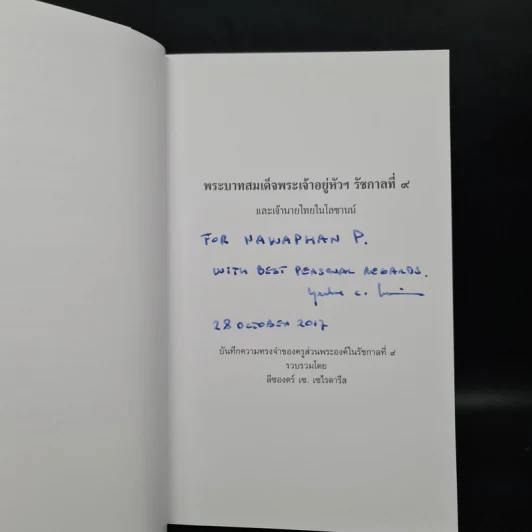 พระบาทสมเด็จพระเจ้าอยู่หัวฯ รัชกาลที่ ๙
และเจ้านายไทยในโลซานน์
FOR NAWAPHAN P.
WITH BEST PERSONAL REGARDS.
28 OCTOBER 2017
บันทึกความทรงจำของครูส่วนพระองค์ในรัชกาลที่ ๙
รวบรวมโดย
ลีซองดร์ เซ. เซไรดารีส